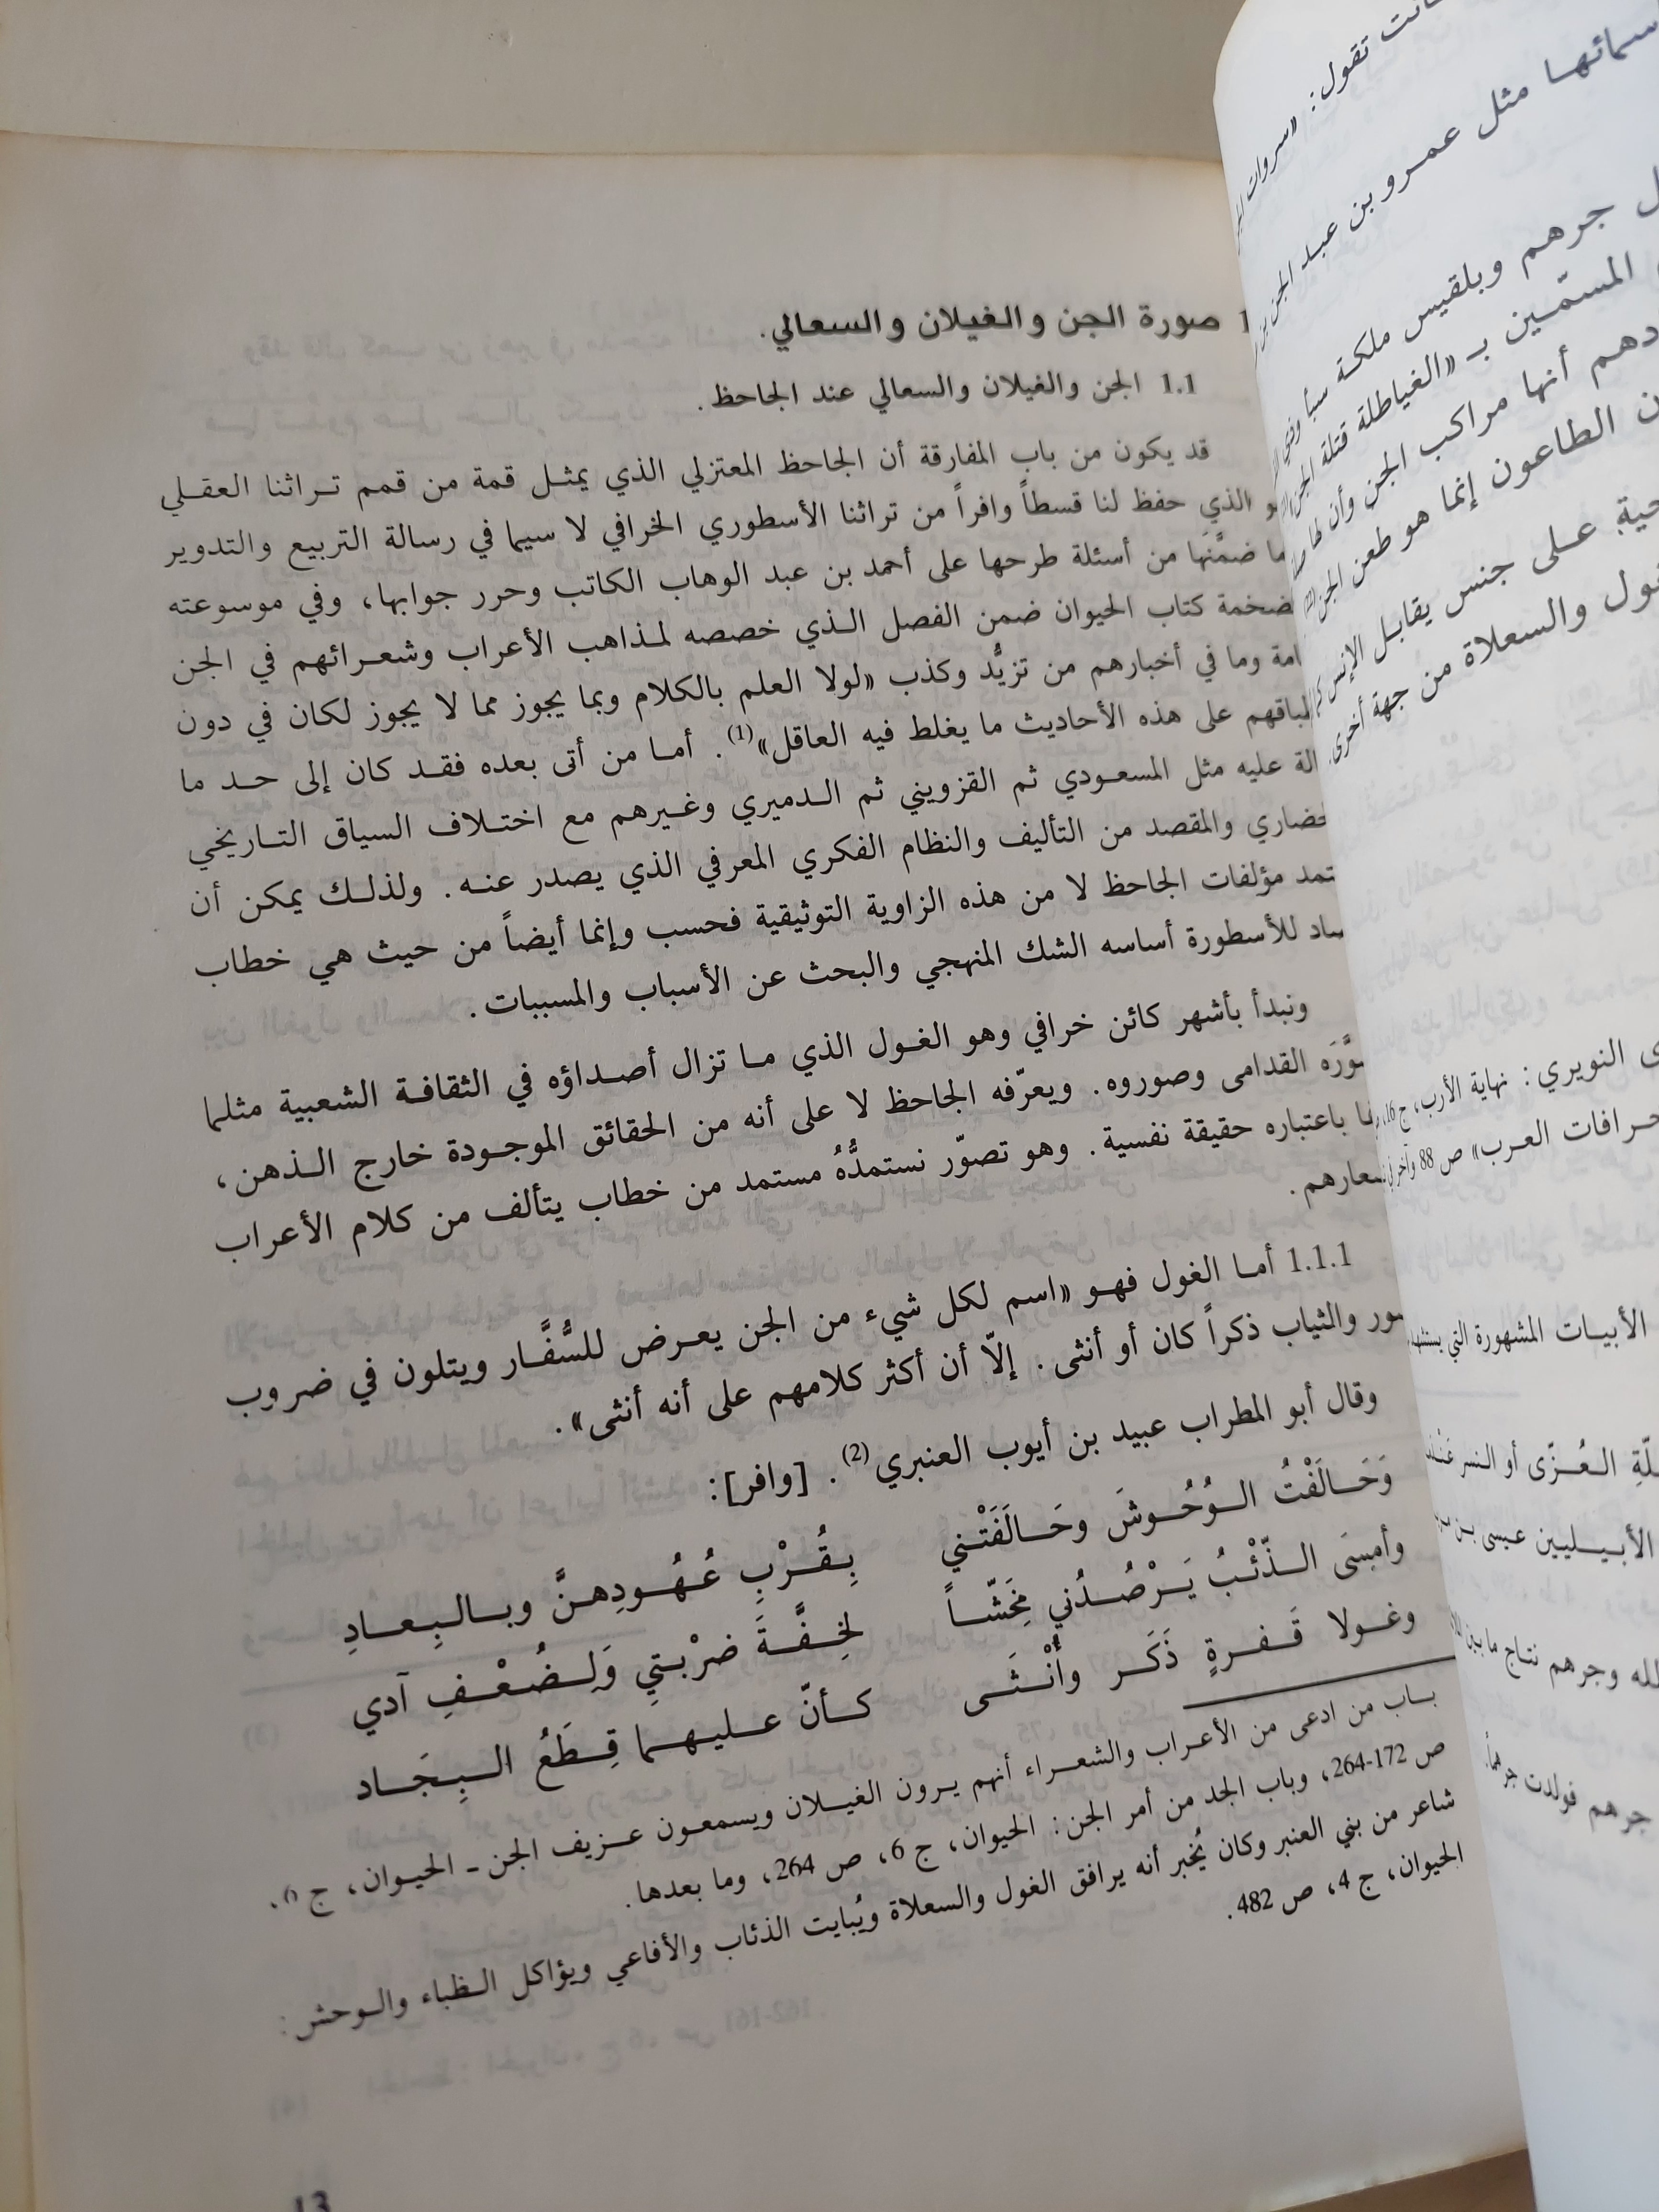 1 صورة الجن والغيلان والسعالي.
1.1 الجن والغيلان والسعالي عند الجاحظ.
قد يكون من باب المفارقة أن الجاحظ المعتزلي الذي يمثل قمة من قمم تراثنا العقلي
الذي حفظ لنا قسطاً وافراً من تراثنا الأسطوري الخرافي لا سيما في رسالة التربيع والتدوير
ما ضمَّنَها من أسئلة طرحها على أحمد بن عبد الوهاب الكاتب وحرر جوابها، وفي موسوعته
ضخمة كتاب الحيوان ضمن الفصل الذي خصصه لمذاهب الأعراب وشعرائهم في الجن
امة وما في أخبارهم من تزيُّد وكذب «لولا العلم بالكلام وبما يجوز مما لا يجوز لكان في دون
لباقهم على هذه الأحاديث ما يغلط فيه العاقل»(1). أما من أتى بعده فقد كان إلى حد ما
الة عليه مثل المسعودي ثم القزويني ثم الدميري وغيرهم مع اختلاف السياق التاريخي
حضاري والمقصد من التأليف والنظام الفكري المعرفي الذي يصدر عنه. ولذلك يمكن أن
تمد مؤلفات الجاحظ لا من هذه الزاوية التوثيقية فحسب وإنما أيضاً من حيث هي خطاب
ساد للأسطورة أساسه الشك المنهجي والبحث عن الأسباب والمسببات.
ونبدأ بأشهر كائن خرافي وهو الغول الذي ما تزال أصداؤه في الثقافة الشعبية مثلما
وَّرَه القدامى وصوروه. ويعرّفه الجاحظ لا على أنه من الحقائق الموجودة خارج الذهن،
باعتباره حقيقة نفسية. وهو تصوّر نستمدُّهُ مستمد من خطاب يتألف من كلام الأعراب
سعارهم.
1.1.1 أما الغول فهو «اسم لكل شيء من الجن يعرض للسُّفَّار ويتلون في ضروب
ور والثياب ذكراً كان أو أنثى. إلاّ أن أكثر كلامهم على أنه أنثى».
وقال أبو المطراب عبيد بن أيوب العنبري(2). [وافر]:
وَحَالَفْتُ الوُحُوشَ وحَالَفَتْني بِقُرْبِ عُهُودِهنَّ وبالبِعادِ
وأمسَى الذّئْبُ يَرْصُدُني مِخَشّاً لخِفَّةَ ضرْبتي وَلِضُعْفِ آدي
وغولا قَفرةٍ ذَكَر وأُنْثَى كأنّ عليهما قِطَعُ البِجَاد
باب من ادعى من الأعراب والشعراء أنهم يرون الغيلان ويسمعون عزيف الجن ـ الحيوان، ج 6،
ص 172-264، وباب الجد من أمر الجن: الحيوان، ج 6، ص 264، وما بعدها.
شاعر من بني العنبر وكان يُخبر أنه يرافق الغول والسعلاة ويُبايت الذئاب والأفاعي ويؤاكل الظباء والوحش:
الحيوان، ج 4، ص 482.
13
تقول: «سروات
سمائها مثل عمرو بن عبد الجن
جرهم وبلقيس ملكة سبأ
المسمّين بـ «الغياطلة قتلة الجن
دهم أنها مراكب الجن وأن
ن الطاعون إنما هو طعن الجن
حية على جنس يقابل الإنس
والسعلاة من جهة أخرى.
ى النويري: نهاية الأرب، ج 16،
خرافات العرب» ص 88
الأبيات المشهورة التي
العُزّى أو النسر
الأبيليين عيسى بن
لله وجرهم نتاج ما بين
جرهم فولدت جرهماً.